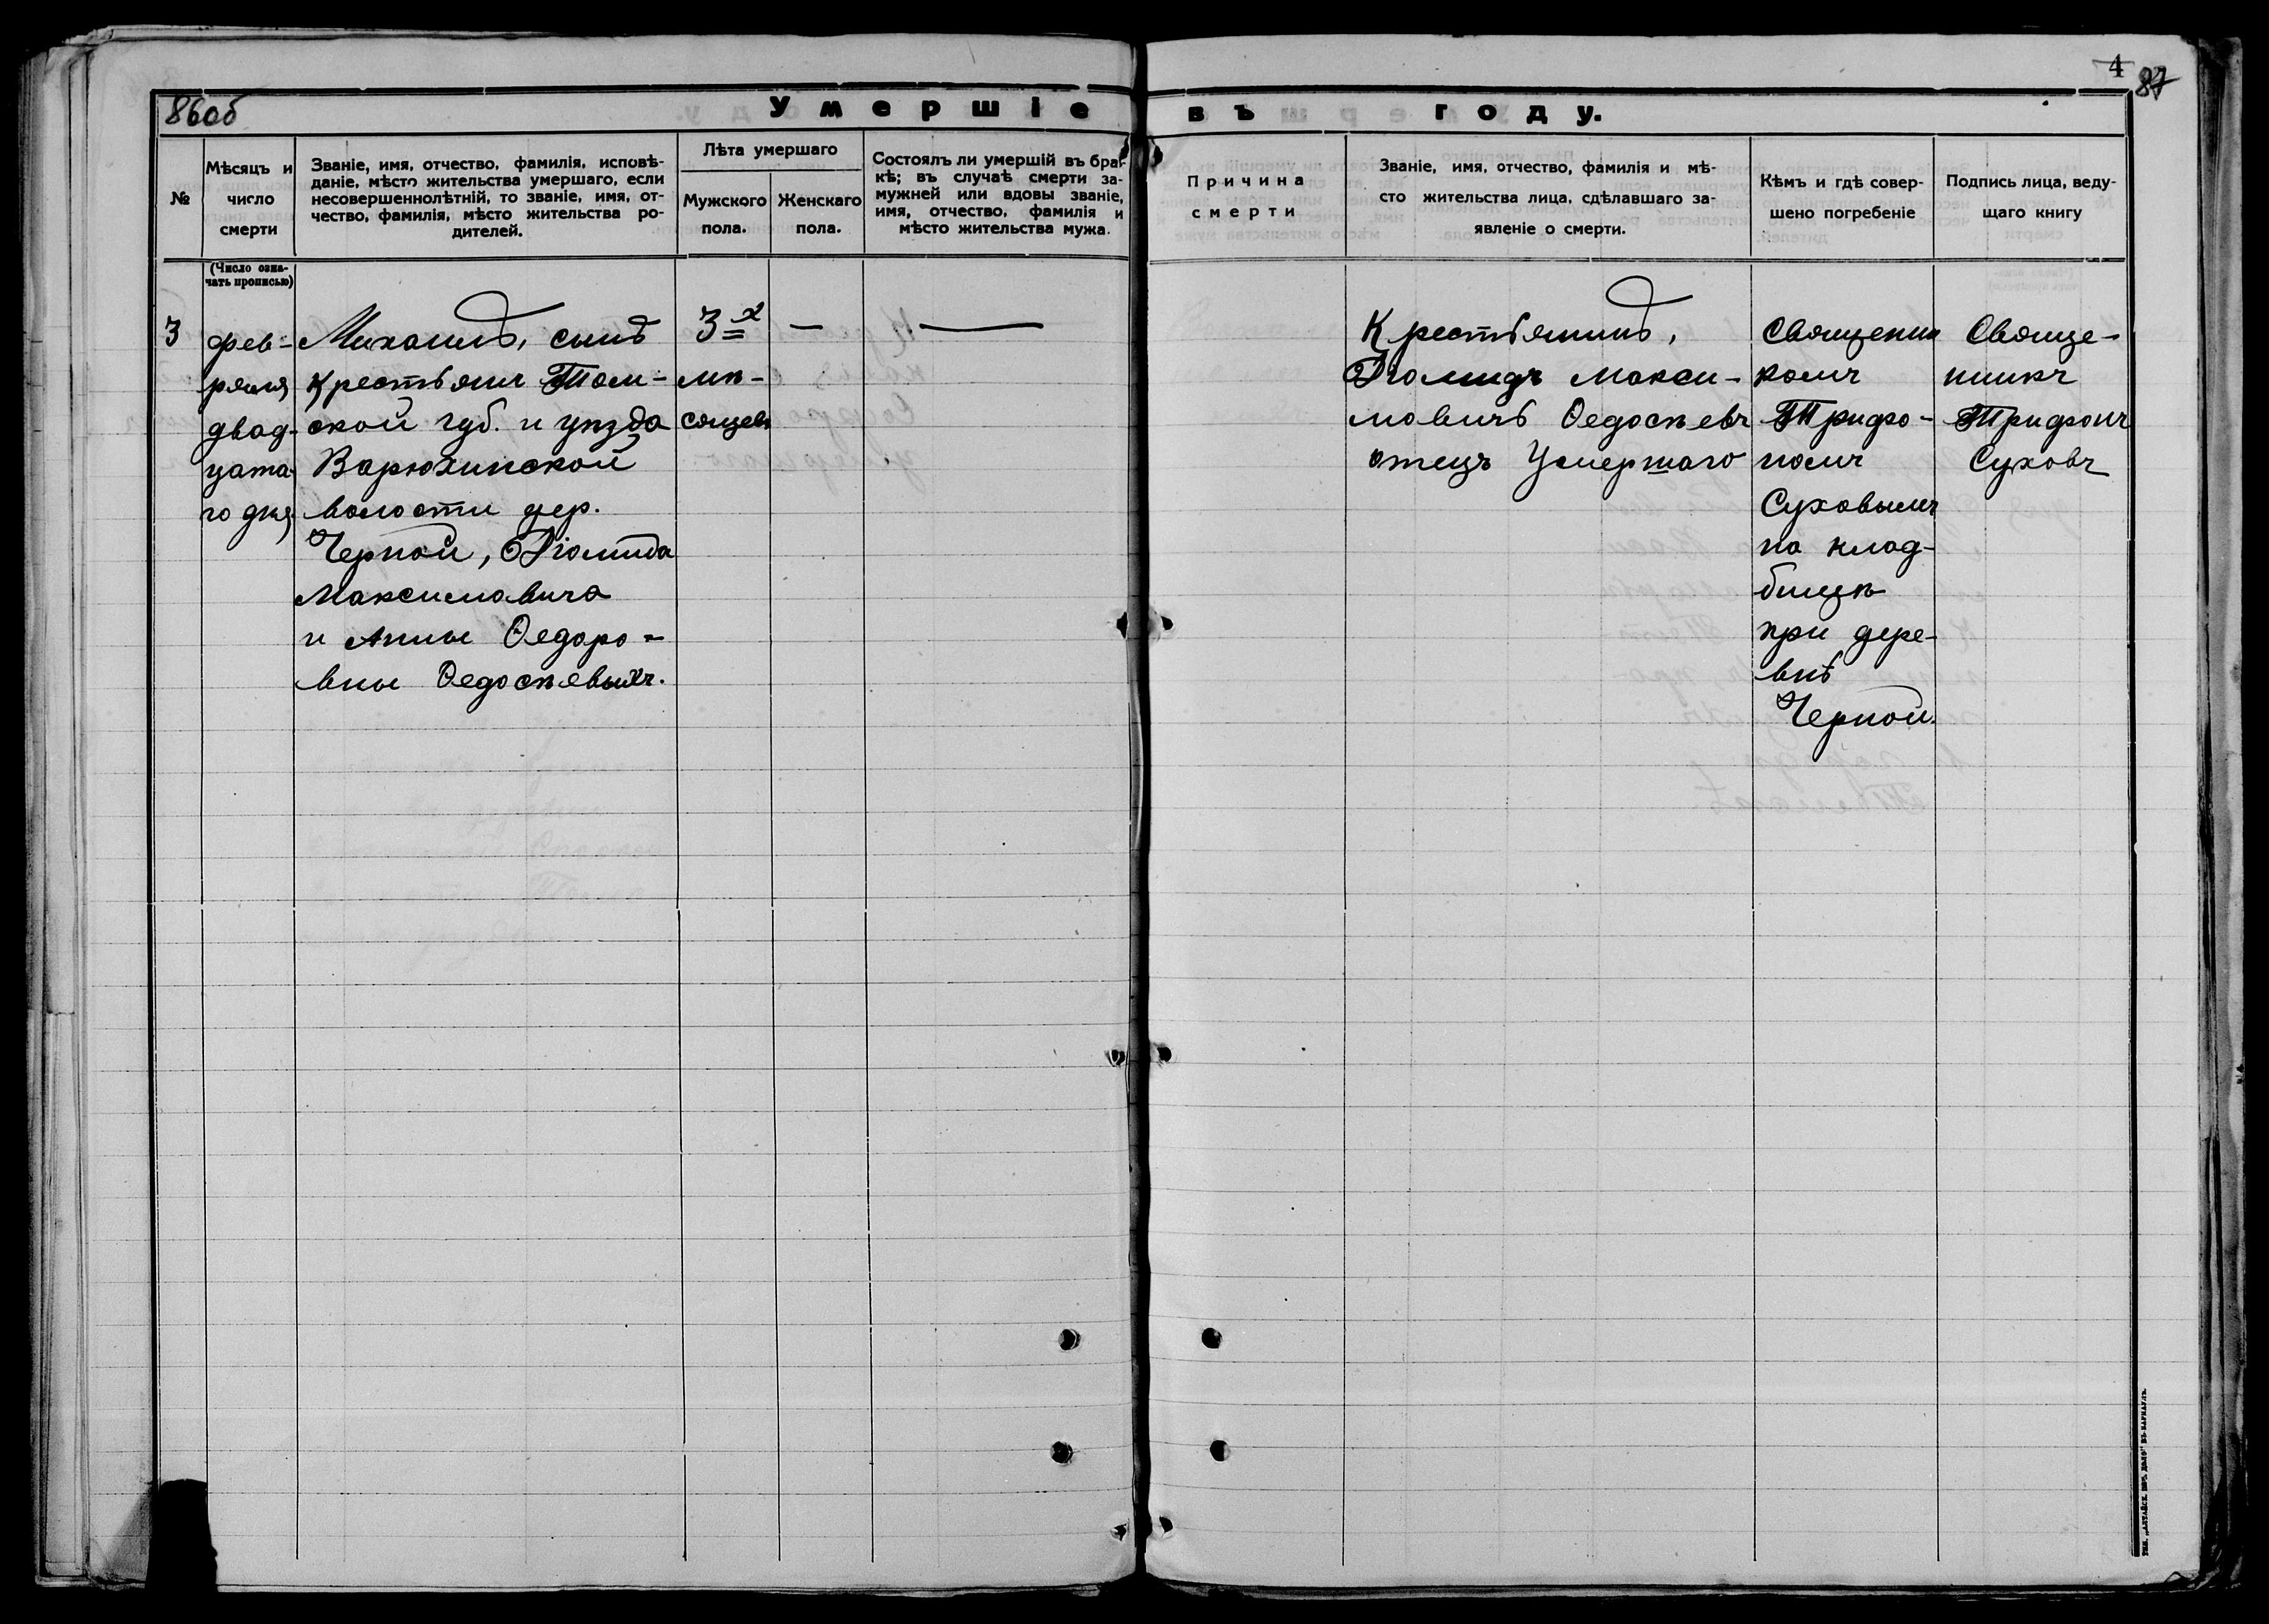 4
87
86об
Умершіе въ году.
№
Мѣсяцъ и
число
смерти
Званіе, имя, отчество, фамилія, исповѣ-
даніе, мѣсто жительства умершаго, если
несовершеннолѣтній, то званіе, имя, от-
чество, фамилія, мѣсто жительства ро-
дителей.
Лѣта умершаго
Мужского
пола.
Женскаго
пола.
Состоялъ ли умершій въ бра-
кѣ; въ случаѣ смерти за-
мужней или вдовы званіе,
имя, отчество, фамилія и
мѣсто жительства мужа.
Причина
смерти
Званіе, имя, отчество, фамилія и мѣ-
сто жительства лица, сдѣлавшаго за-
явленіе о смерти.
Кѣмъ и гдѣ совер-
шено погребеніе
Подпись лица, веду-
щаго книгу
(Число озна-
чать прописью)
3
фев-
раля
двад-
цата
го дня
Михаилъ, сынъ
Крестьянъ Том-
ской губ. и уѣзда
Варюхинской
волости дер.
Черной, Діомида
Максимовича
и Анны Ѳедоро-
вны Ѳедосѣевыхъ.
3-х
мѣ-
сяцевъ
—
—
Крестьянинъ,
Діомидъ Макси-
мовичъ Ѳедосѣевъ
отецъ Умершаго
Священни
комъ
Трифо-
номъ
Суховымъ
на клад-
бищѣ
при дере-
внѣ
Черной.
Свяще-
нникъ
Трифонъ
Суховъ
ТИП. „АЛТАЙСК. ПЕЧ. ДѢЛО" ВЪ БАРНАУЛѢ.